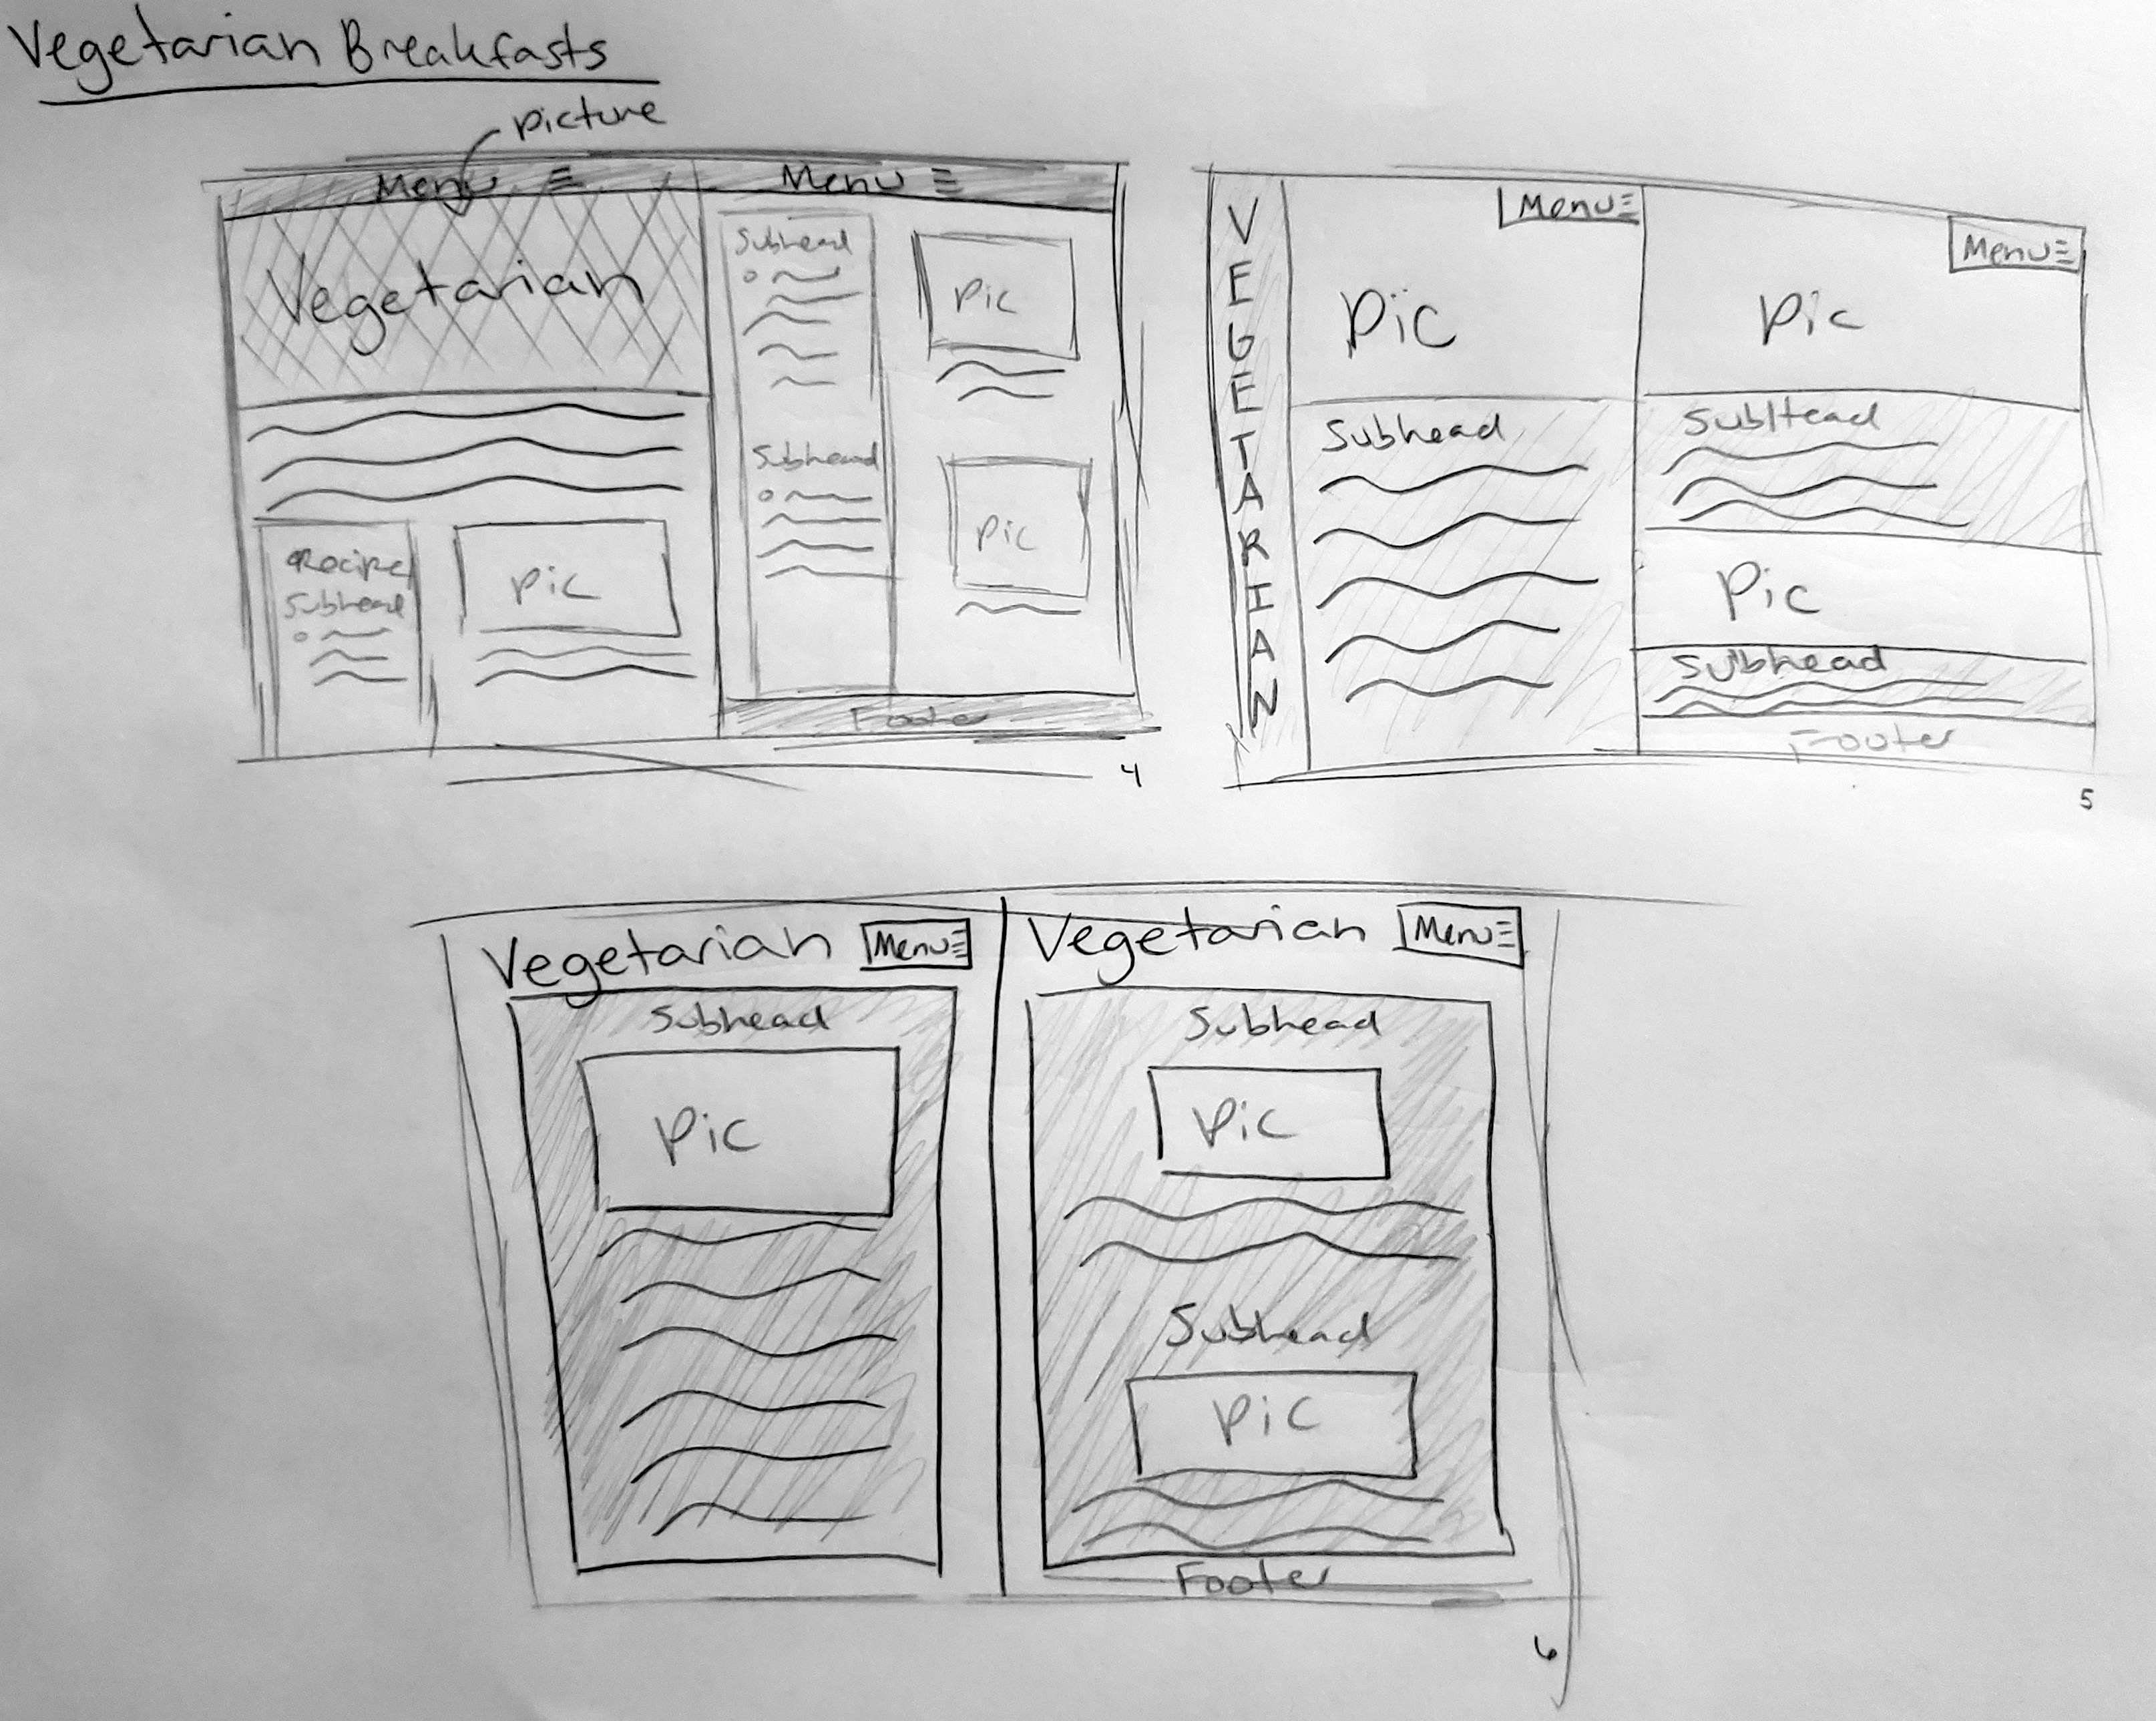 Vegetarian Breakfasts
picture
Menu
Vegetarian
Recipe
Subhead
Pic
Menu
Subhead
Pic
Subhead
Pic
Footer
4
VEGETARIAN
Menu
Pic
Subhead
Menu
Pic
SubHead
Pic
Subhead
Footer
5
Vegetarian Menu
Subhead
Pic
Vegetarian Menu
Subhead
Pic
Subhead
Pic
Footer
6